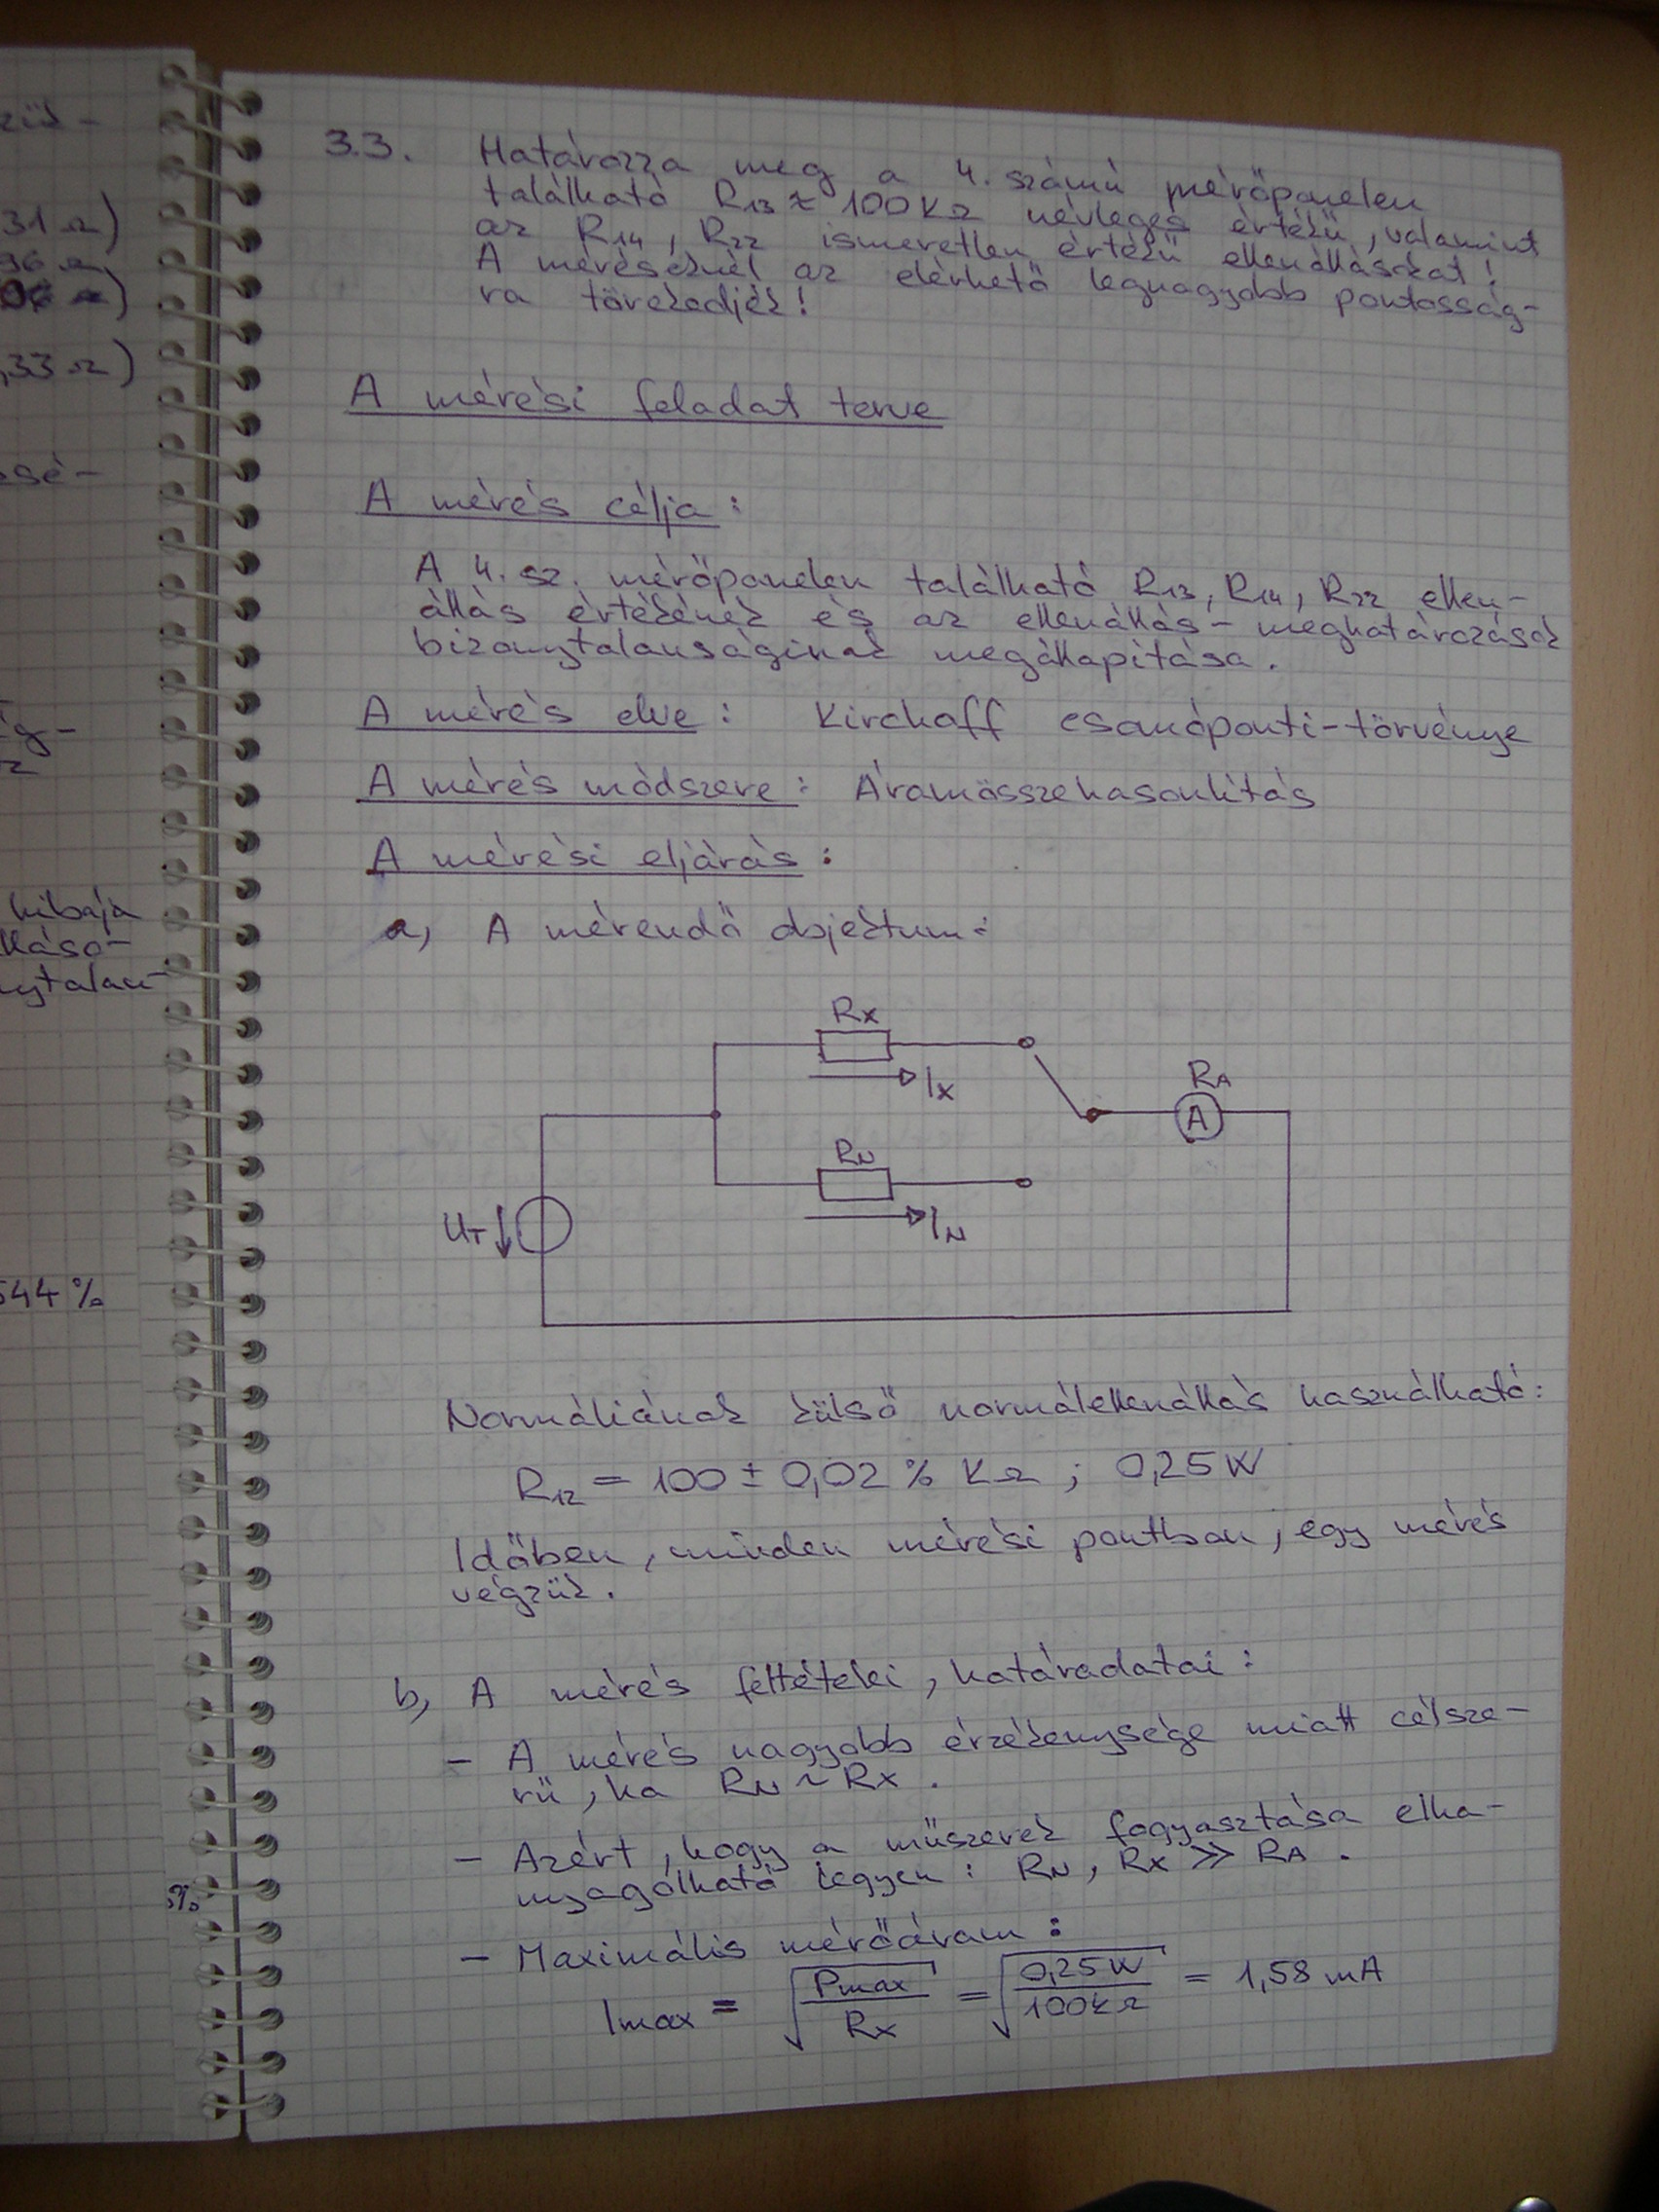 zü-
31 Ω)
96 Ω
,33 Ω)
sé-
ig-
hibája
lláso-
ytalan-
544 %
%
3.3. Határozza meg a 4. számú mérőpanelen
található R13 ≈ 100 kΩ névleges értékű, valamint
az R14, R22 ismeretlen értékű ellenállásokat!
A mérésüknél az elérhető legnagyobb pontosság-
ra törekedjék!
A mérési feladat terve
A mérés célja:
A 4. sz. mérőpanelen található R13, R14, R22 ellen-
állás értékének és az ellenállás-meghatározások
bizonytalanságinak megállapítása.
A mérés elve: Kirchoff csomóponti-törvénye
A mérés módszere: Áramösszehasonlítás
A mérési eljárás:
a, A mérendő objektum:
Rx
Ix
RA
A
RN
IN
UT
Normáliának külső normálellenállás használható:
R12 = 100 ± 0,02 % kΩ ; 0,25 W
Időben, minden mérési pontban, egy mérés
végzük.
b, A mérés feltételei, határadatai:
- A mérés nagyobb érzékenysége miatt célsze-
rű, ha RN ~ RX.
- Azért, hogy a műszerek fogyasztása elha-
nyagolható legyen: RN, RX >> RA.
- Maximális mérőáram:
Imax = √(Pmax / Rx) = √(0,25 W / 100 kΩ) = 1,58 mA